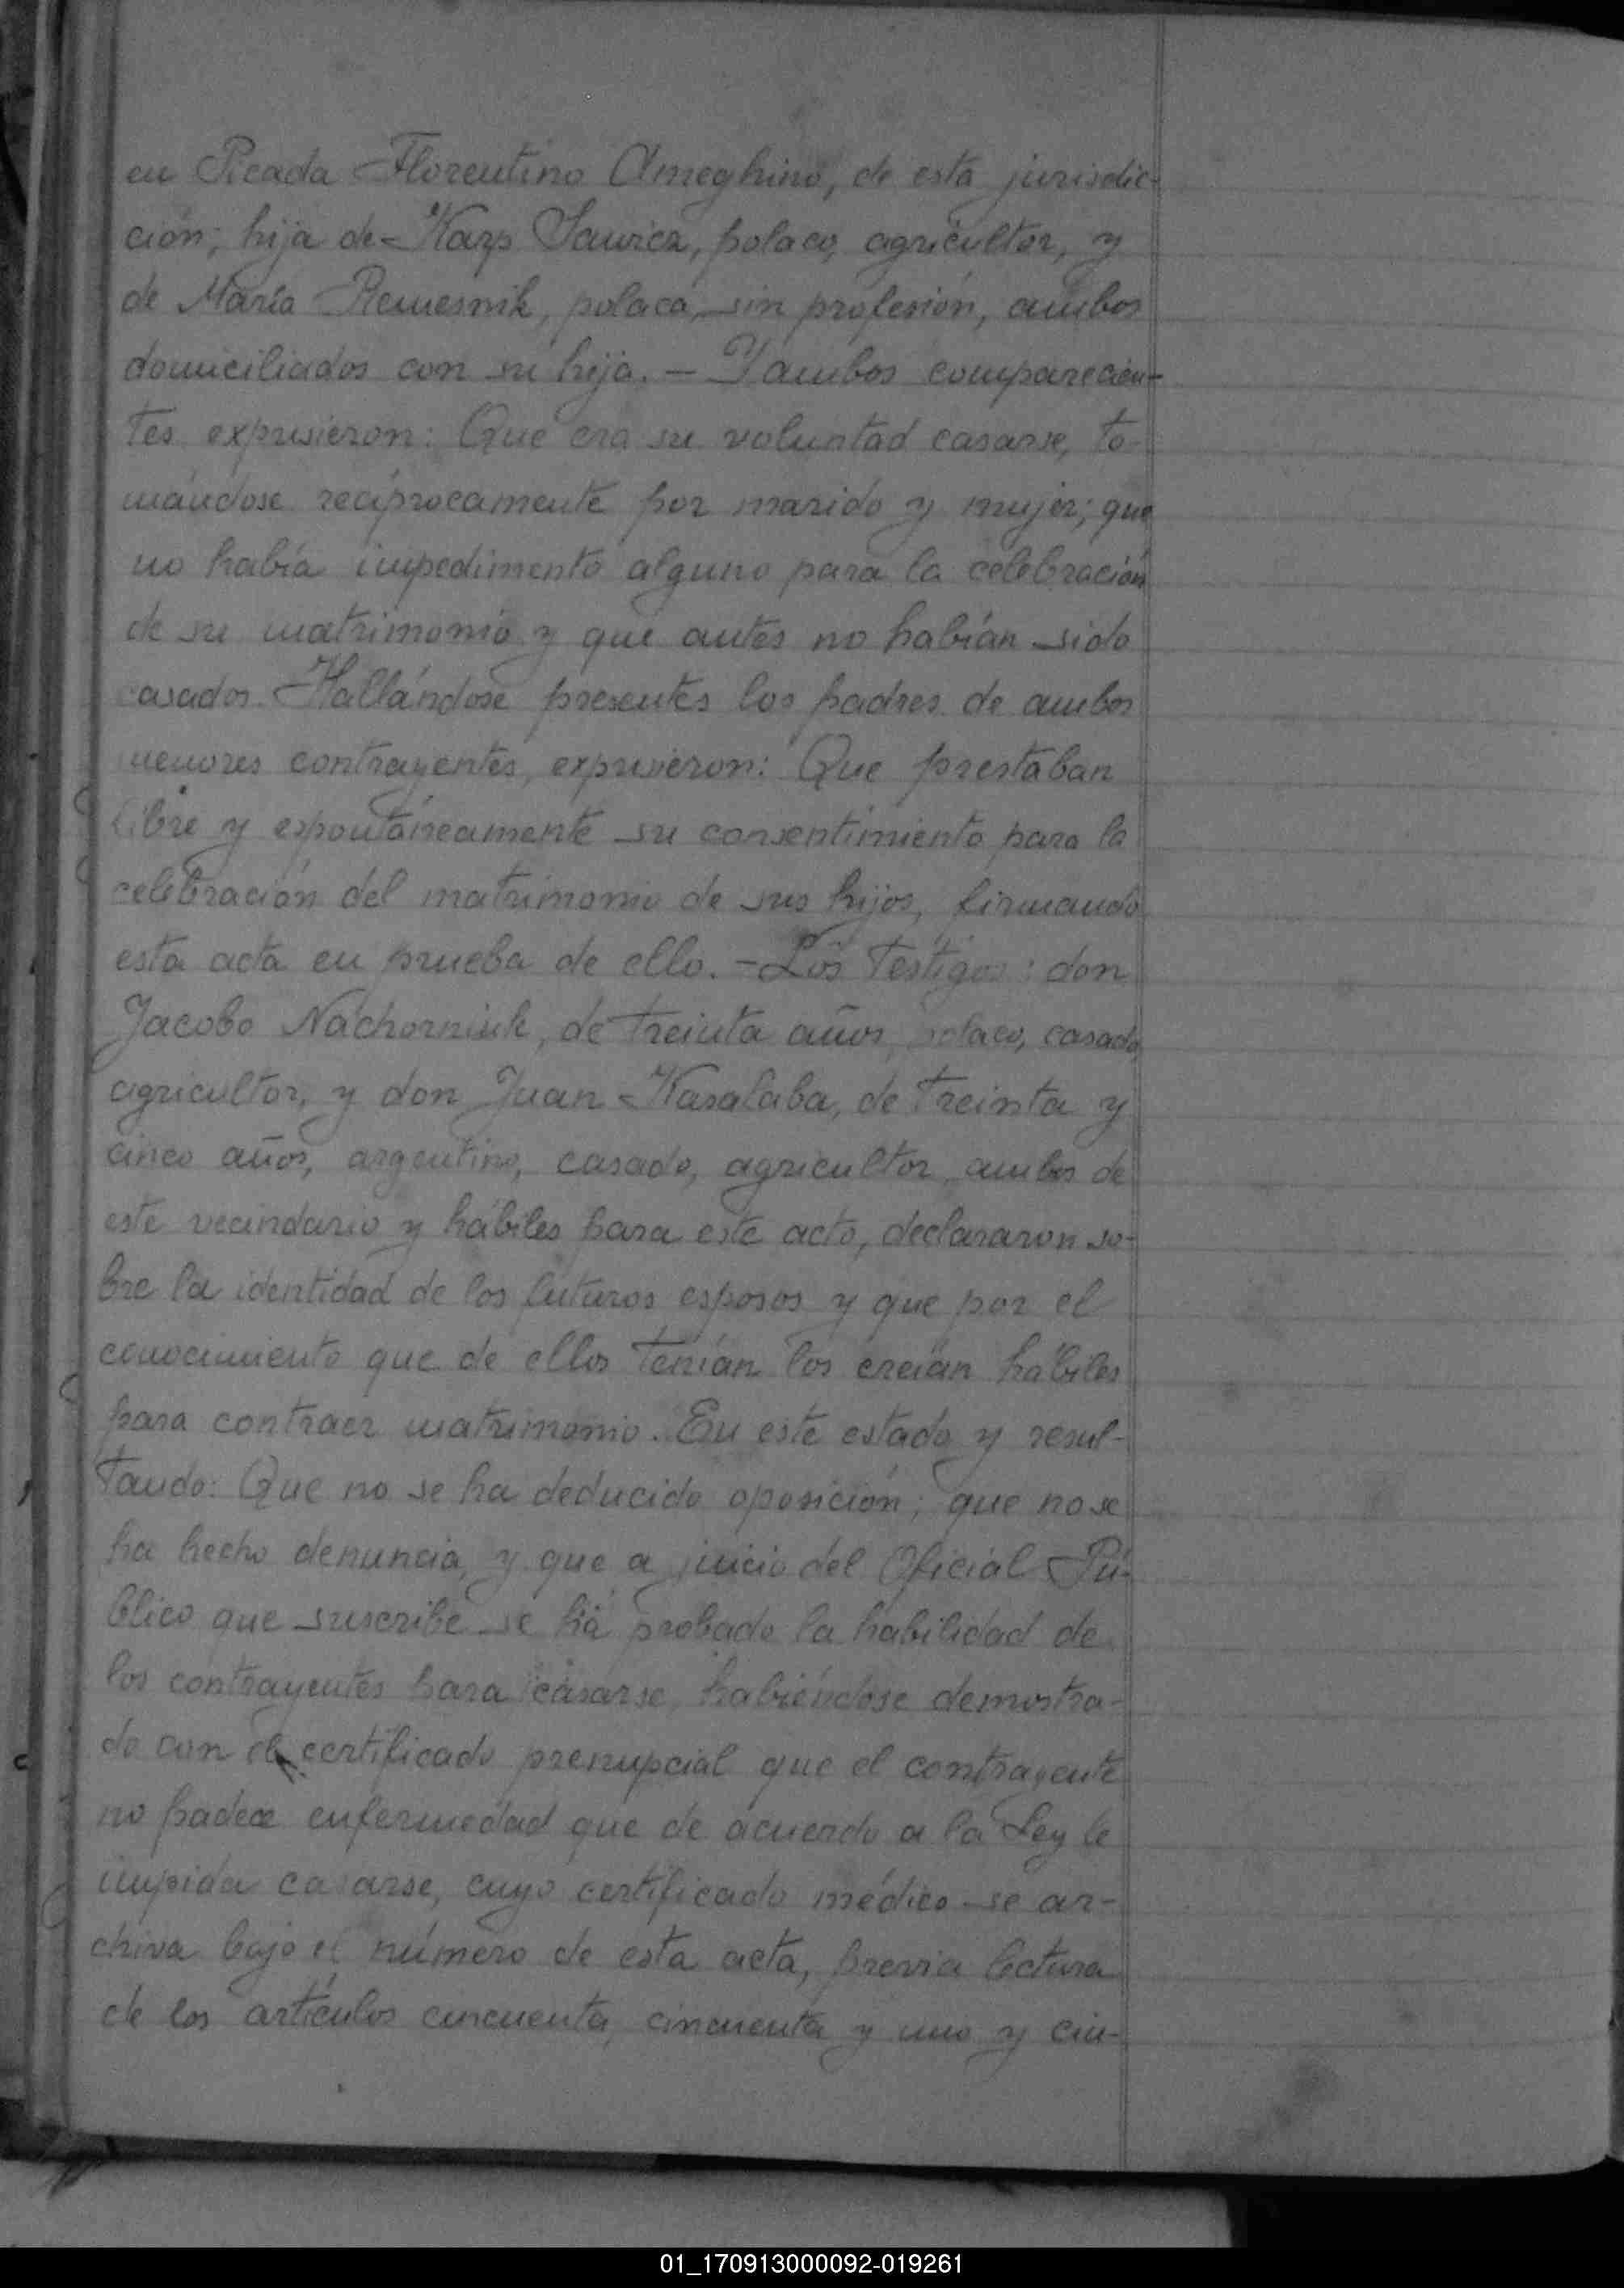 en Picada Florentino Ameghino, de esta jurisdic-
ción; hija de Karp Sawicz, polaco, agricultor, y
de María Remesnik, polaca, sin profesión, ambos
domiciliados con su hija. — Y ambos comparecien-
tes expusieron: Que era su voluntad casarse, to-
mándose recíprocamente por marido y mujer; que
no había impedimento alguno para la celebración
de su matrimonio y que antes no habían sido
casados. Hallándose presentes los padres de ambos
menores contrayentes, expusieron: Que prestaban
libre y espontáneamente su consentimiento para la
celebración del matrimonio de sus hijos, firmando
esta acta en prueba de ello. — Los testigos: don
Jacobo Nachorniuk, de treinta años, polaco, casado,
agricultor, y don Juan Kasalaba, de treinta y
cinco años, argentino, casado, agricultor, ambos de
este vecindario y hábiles para este acto, declararon so-
bre la identidad de los futuros esposos y que por el
conocimiento que de ellos tenían los creían hábiles
para contraer matrimonio. En este estado y resul-
tando: Que no se ha deducido oposición; que no se
ha hecho denuncia, y que a juicio del Oficial Pú-
blico que suscribe se ha probado la habilidad de
los contrayentes para casarse, habiéndose demostra-
do con el certificado prenupcial que el contrayente
no padece enfermedad que de acuerdo a la Ley le
impida casarse, cuyo certificado médico se ar-
chiva bajo el número de esta acta, previa lectura
de los artículos cincuenta, cincuenta y uno y cin-
01_170913000092-019261